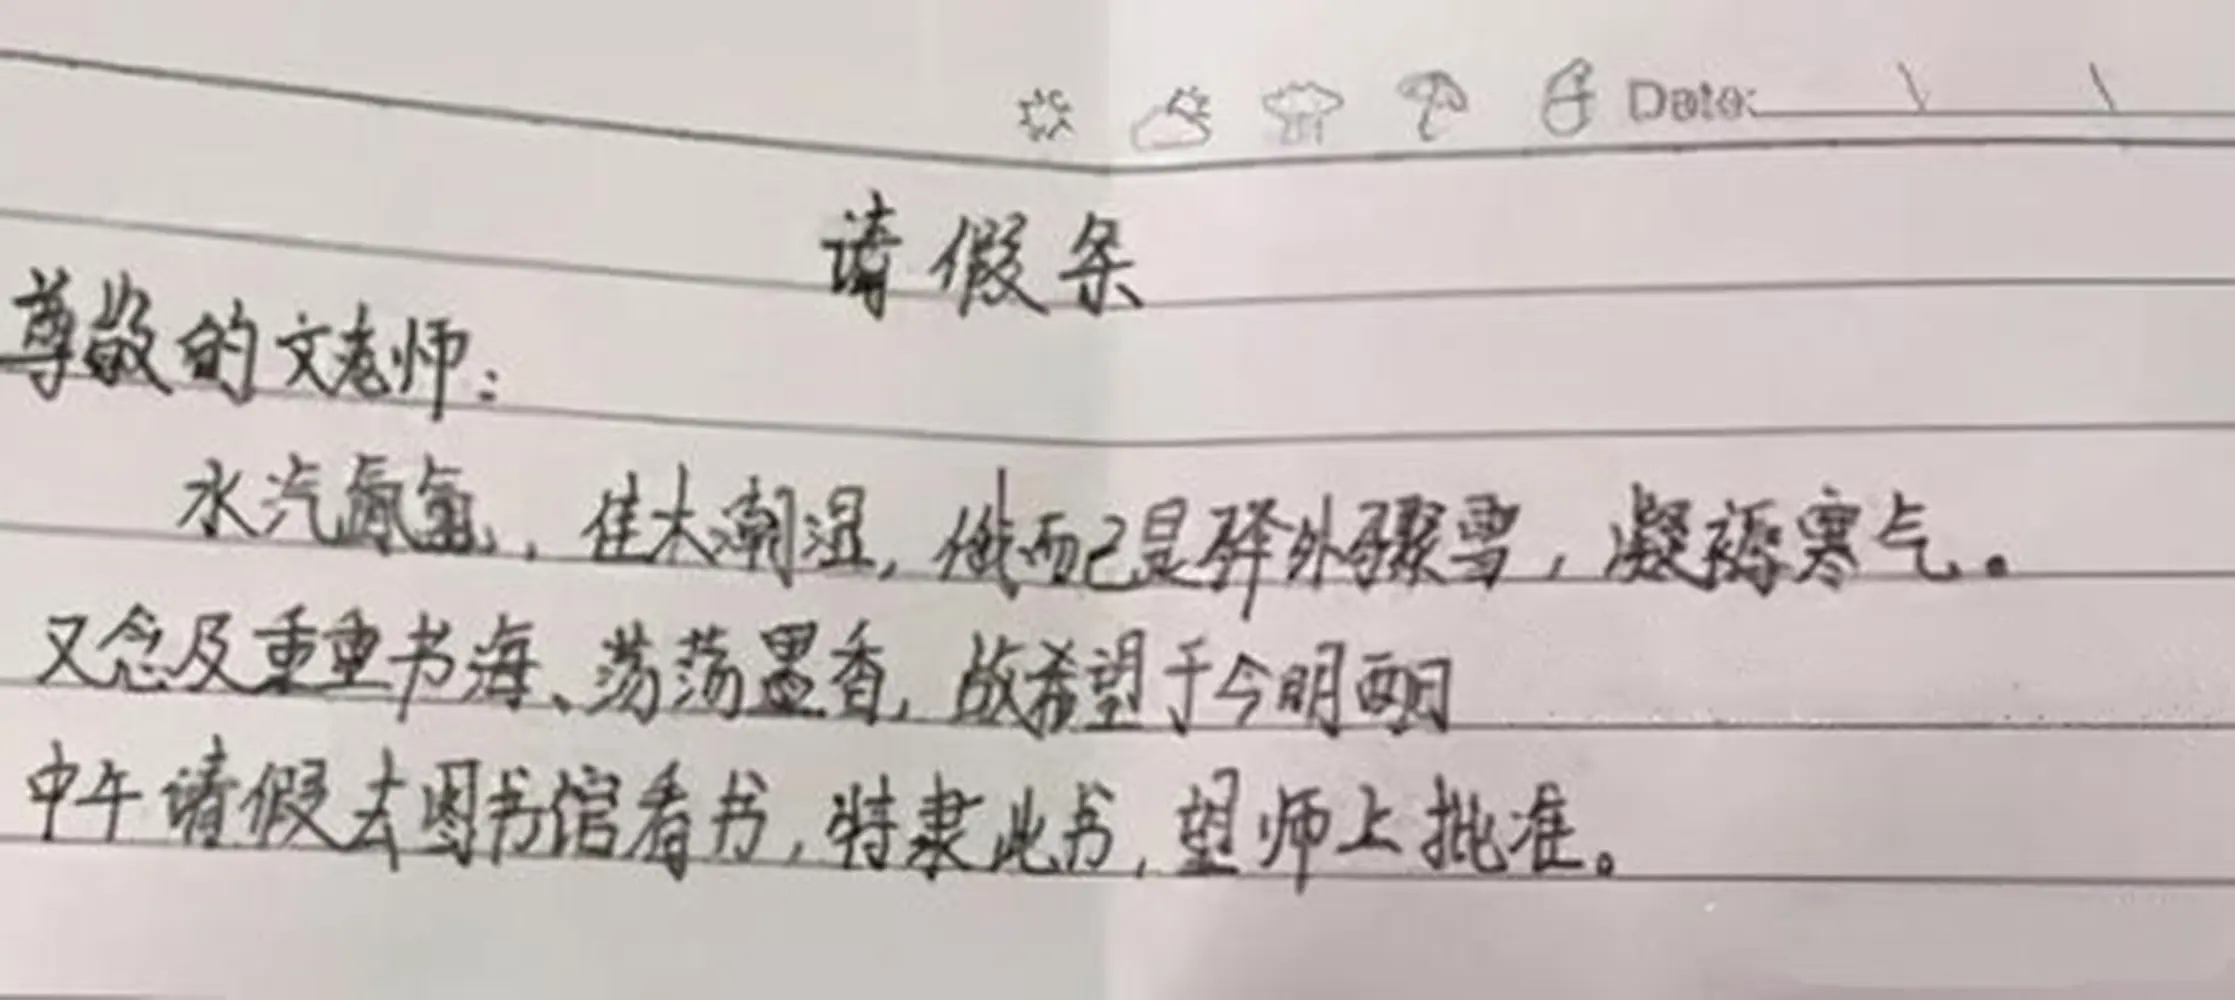 Date:
请假条
尊敬的文老师：
水汽氤氲，佳木潮湿，俄而已是驿外骤雪，凝裹寒气。
又念及重重书海、荡荡墨香，故希望于今明两日
中午请假去图书馆看书，特隶此书，望师上批准。